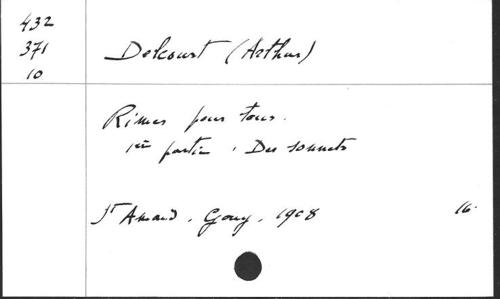 432
371
10
Delcourt (Arthur)
Rimes pour tous.
1ère partie. Des sonnets
St Amand. Gouy. 1908 16.